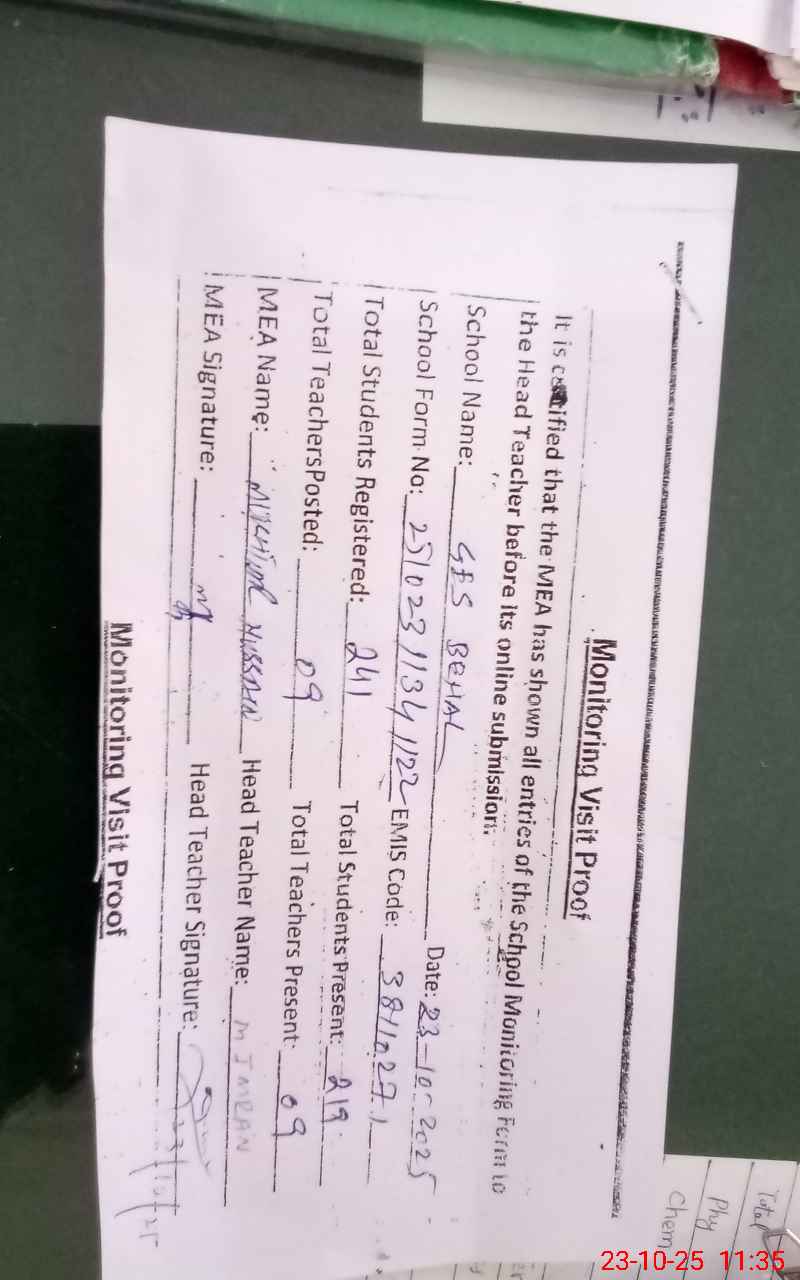 Monitoring Visit Proof
It is certified that the MEA has shown all entries of the School Monitoring Form to
the Head Teacher before its online submission.
School Name: GES BEHAL Date: 23-10-2025
School Form No: 25102311341122 EMIS Code: 38110271
Total Students Registered: 241 Total Students Present: 219
Total TeachersPosted: 09 Total Teachers Present: 09
MEA Name: HUSSAIN Head Teacher Name: M IMRAN
MEA Signature: Head Teacher Signature: 23/10/25
Monitoring Visit Proof
Total
Phy
Chem
23-10-25 11:35